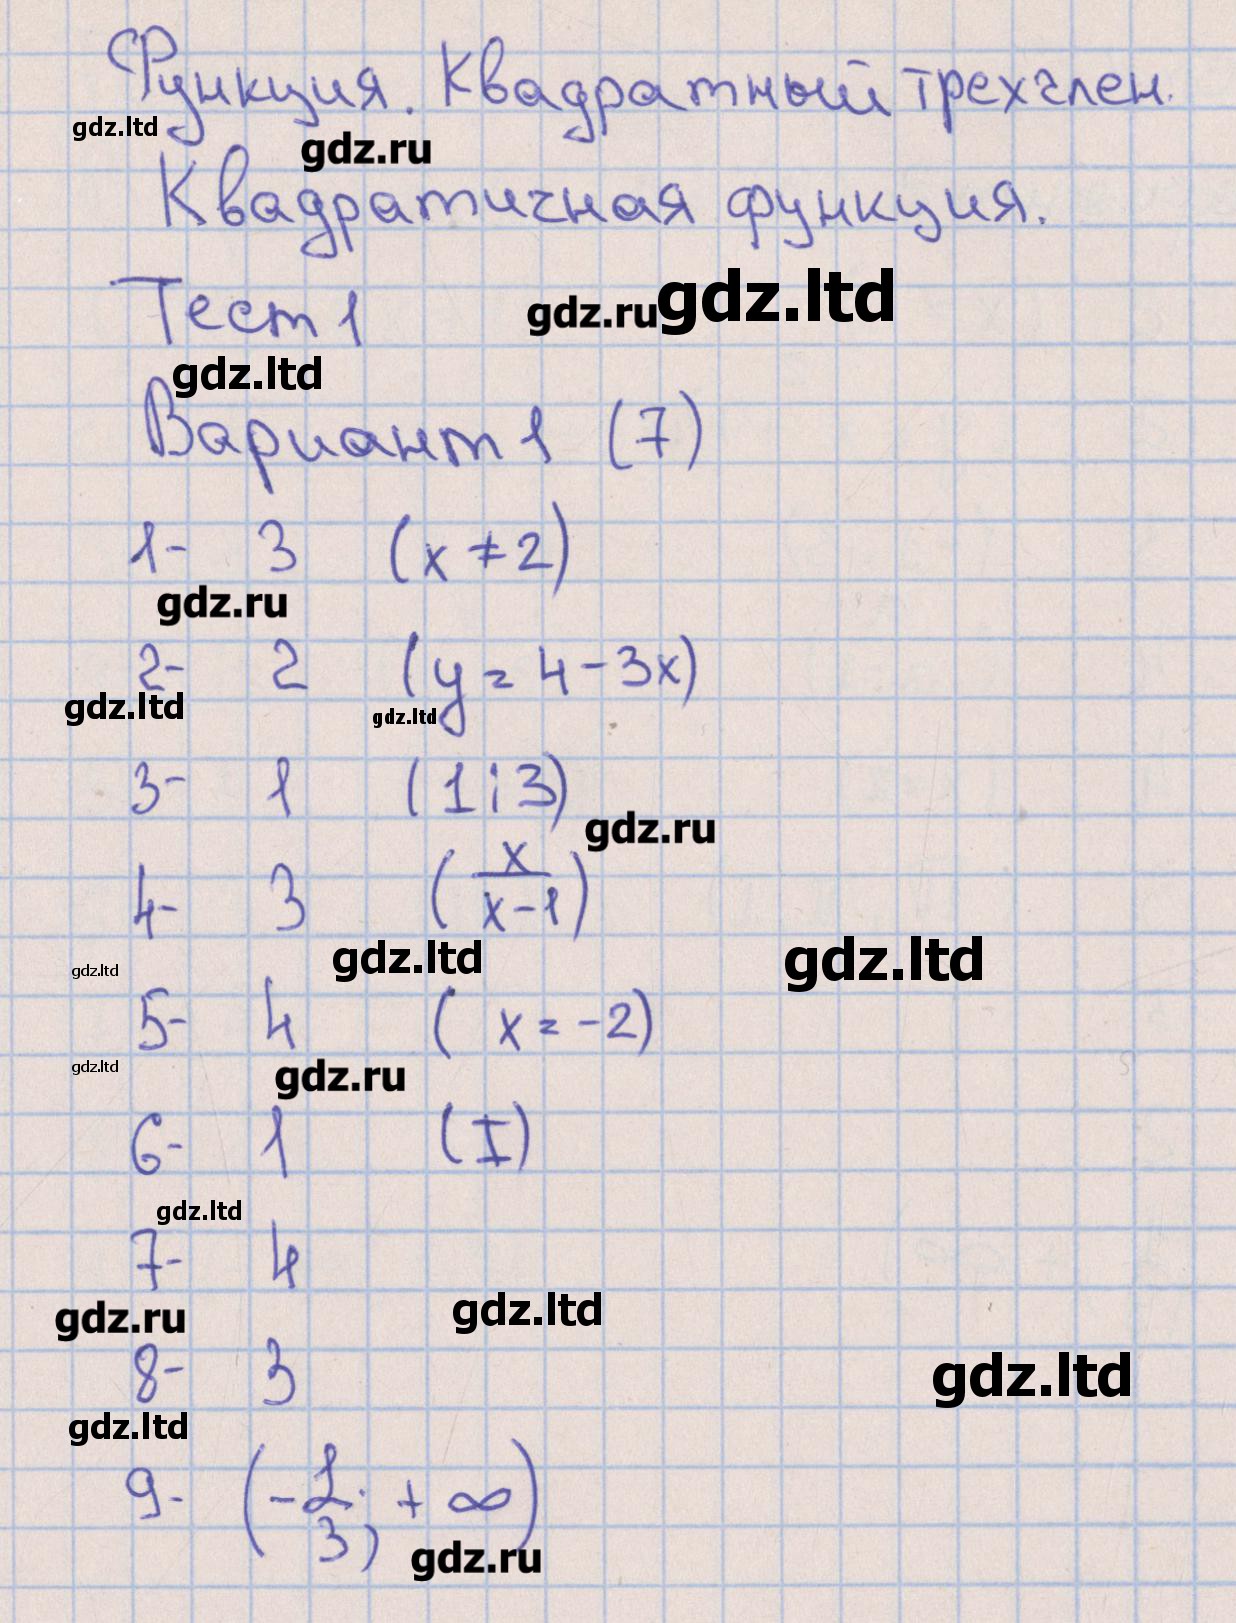 Функция. Квадратный трехчлен.
gdz.ltd
gdz.ru
Квадратичная функция.
Тест 1
gdz.ru
gdz.ltd
gdz.ltd
Вариант 1 (7)
1- 3 (x ≠ 2)
gdz.ru
2- 2 (y = 4 - 3x)
gdz.ltd
gdz.ltd
3- 1 (1; 3)
gdz.ru
4- 3 (x/(x-1))
gdz.ltd
gdz.ltd
gdz.ltd
5- 4 (x = -2)
gdz.ltd
gdz.ru
6- 1 (I)
gdz.ltd
7- 4
gdz.ru
gdz.ltd
8- 3
gdz.ltd
gdz.ltd
9- (-1/3; +∞)
gdz.ru